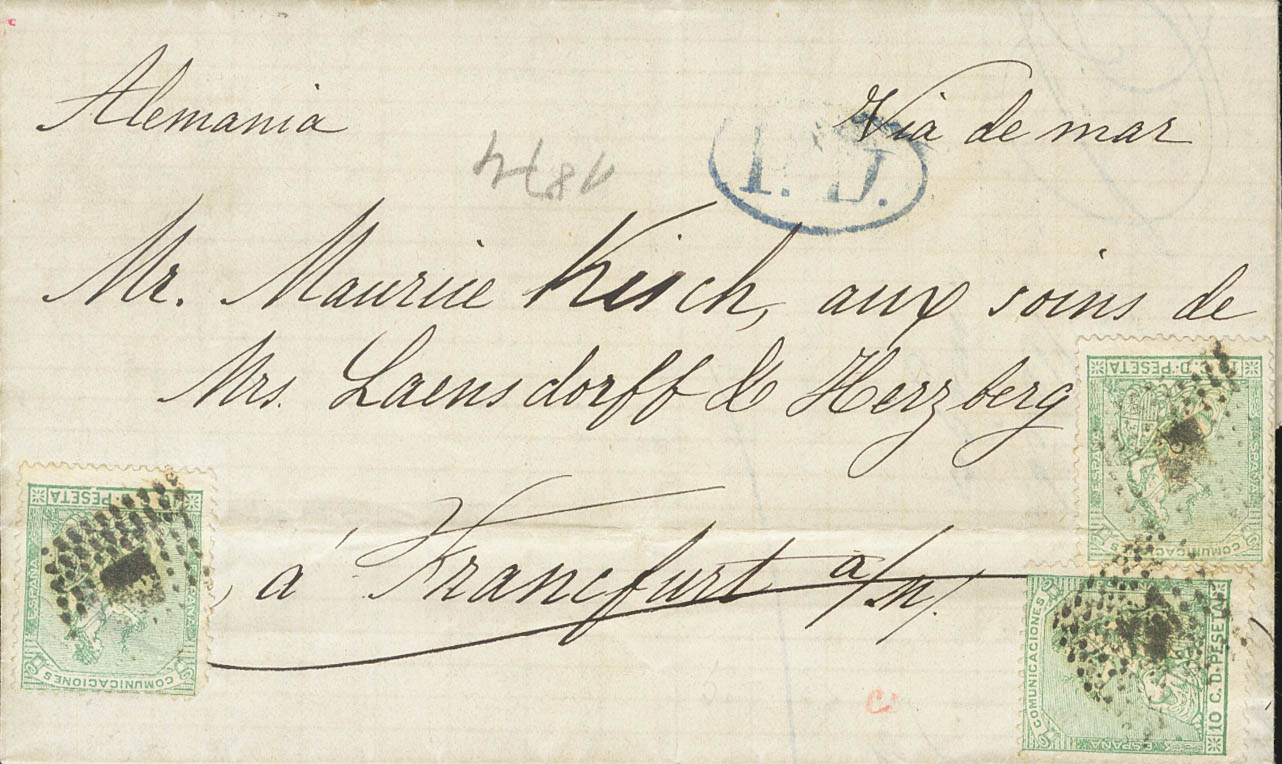 Alemania
Via de mar
P.D.
1874
Mr. Maurice Kisch, aux soins de
Mrs. Laensdorff & Herzberg
à Francfurt a/m/.
COMUNICACIONES
ESPAÑA
10 C. D. PESETA
COMUNICACIONES
ESPAÑA
10 C. D. PESETA
COMUNICACIONES
ESPAÑA
PESETA